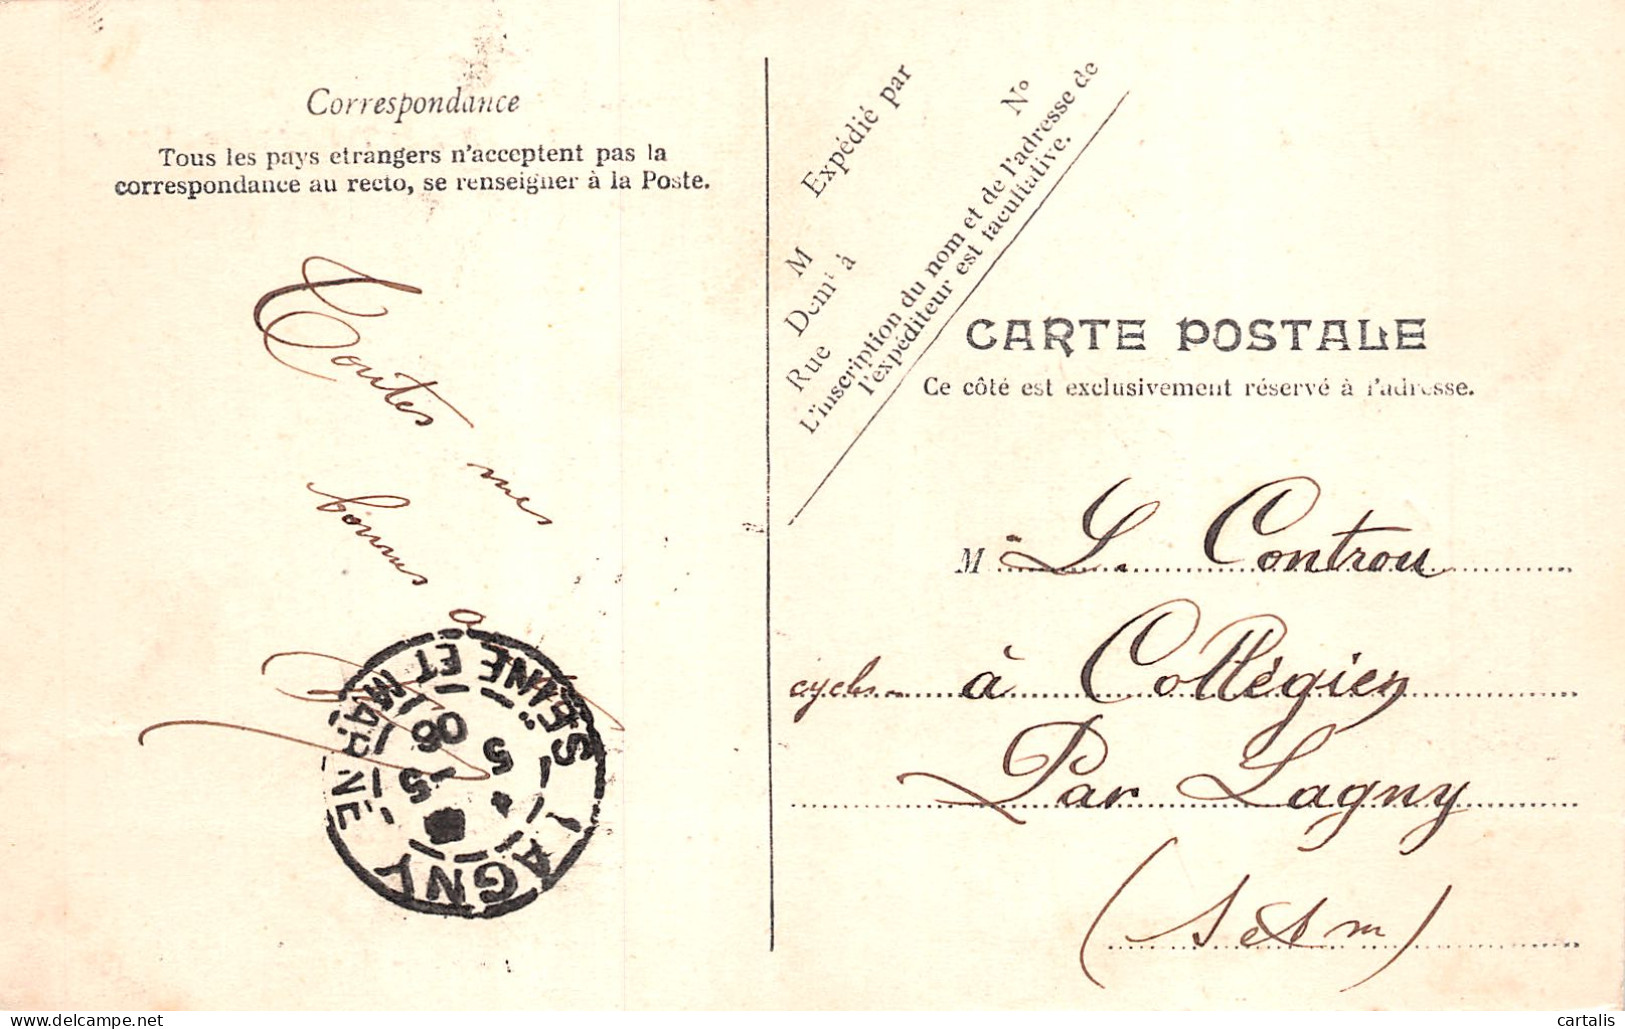 Correspondance
Tous les pays etrangers n'acceptent pas la
correspondance au recto, se renseigner à la Poste.
Toutes mes
bonnes
Expédié par
M
Demt à
Rue
N°
L'inscription du nom et de l'adresse de
l'expéditeur est facultative.
CARTE POSTALE
Ce côté est exclusivement réservé à l'adresse.
M L. Controu
cycles à Collégien
Par Lagny
(S et m)
LAGNY
SEINE ET MARNE
5
5
06
cartalis